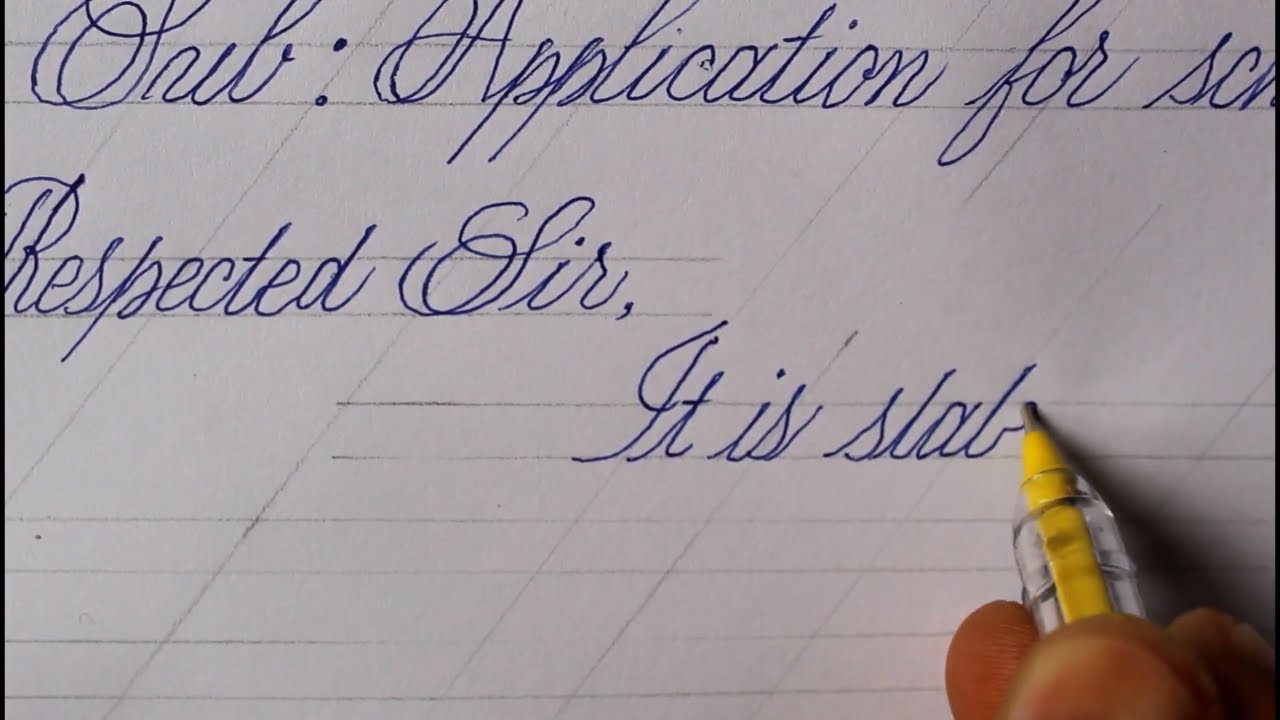 Sub: Application for sch
Respected Sir,
It is